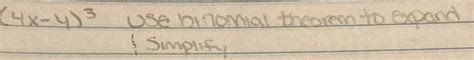 (4x-y)³ Use binomial theorem to expand
& Simplify